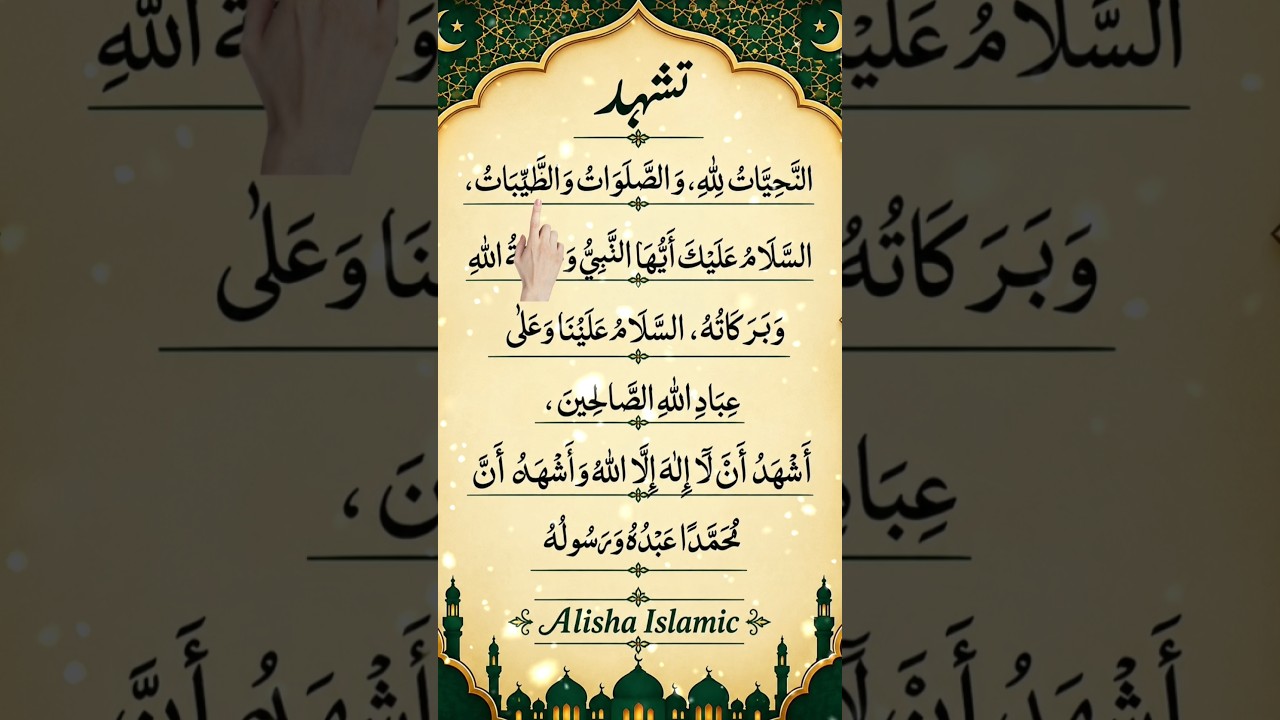 تشهد
النَّحِيَّاتُ لِلّٰهِ، وَالصَّلَوَاتُ وَالظَّيِّبَاتُ،
السَّلَامُ عَلَيْكَ أَيُّهَا النَّبِيُّ اللهِ
وَبَرَكَاتُهُ، السَّلَامُ عَلَيْنَا وَعَلٰى
عِبَادِ اللهِ الصَّالِحِينَ،
أَشْهَدُ أَنَّ لَآ إِلٰهَ إِلَّا اللهُ وَأَشْهَدُ أَنَّ
مُحَمَّدًا عَبْدُهُ وَرَسُولُهُ
Alisha Islamic